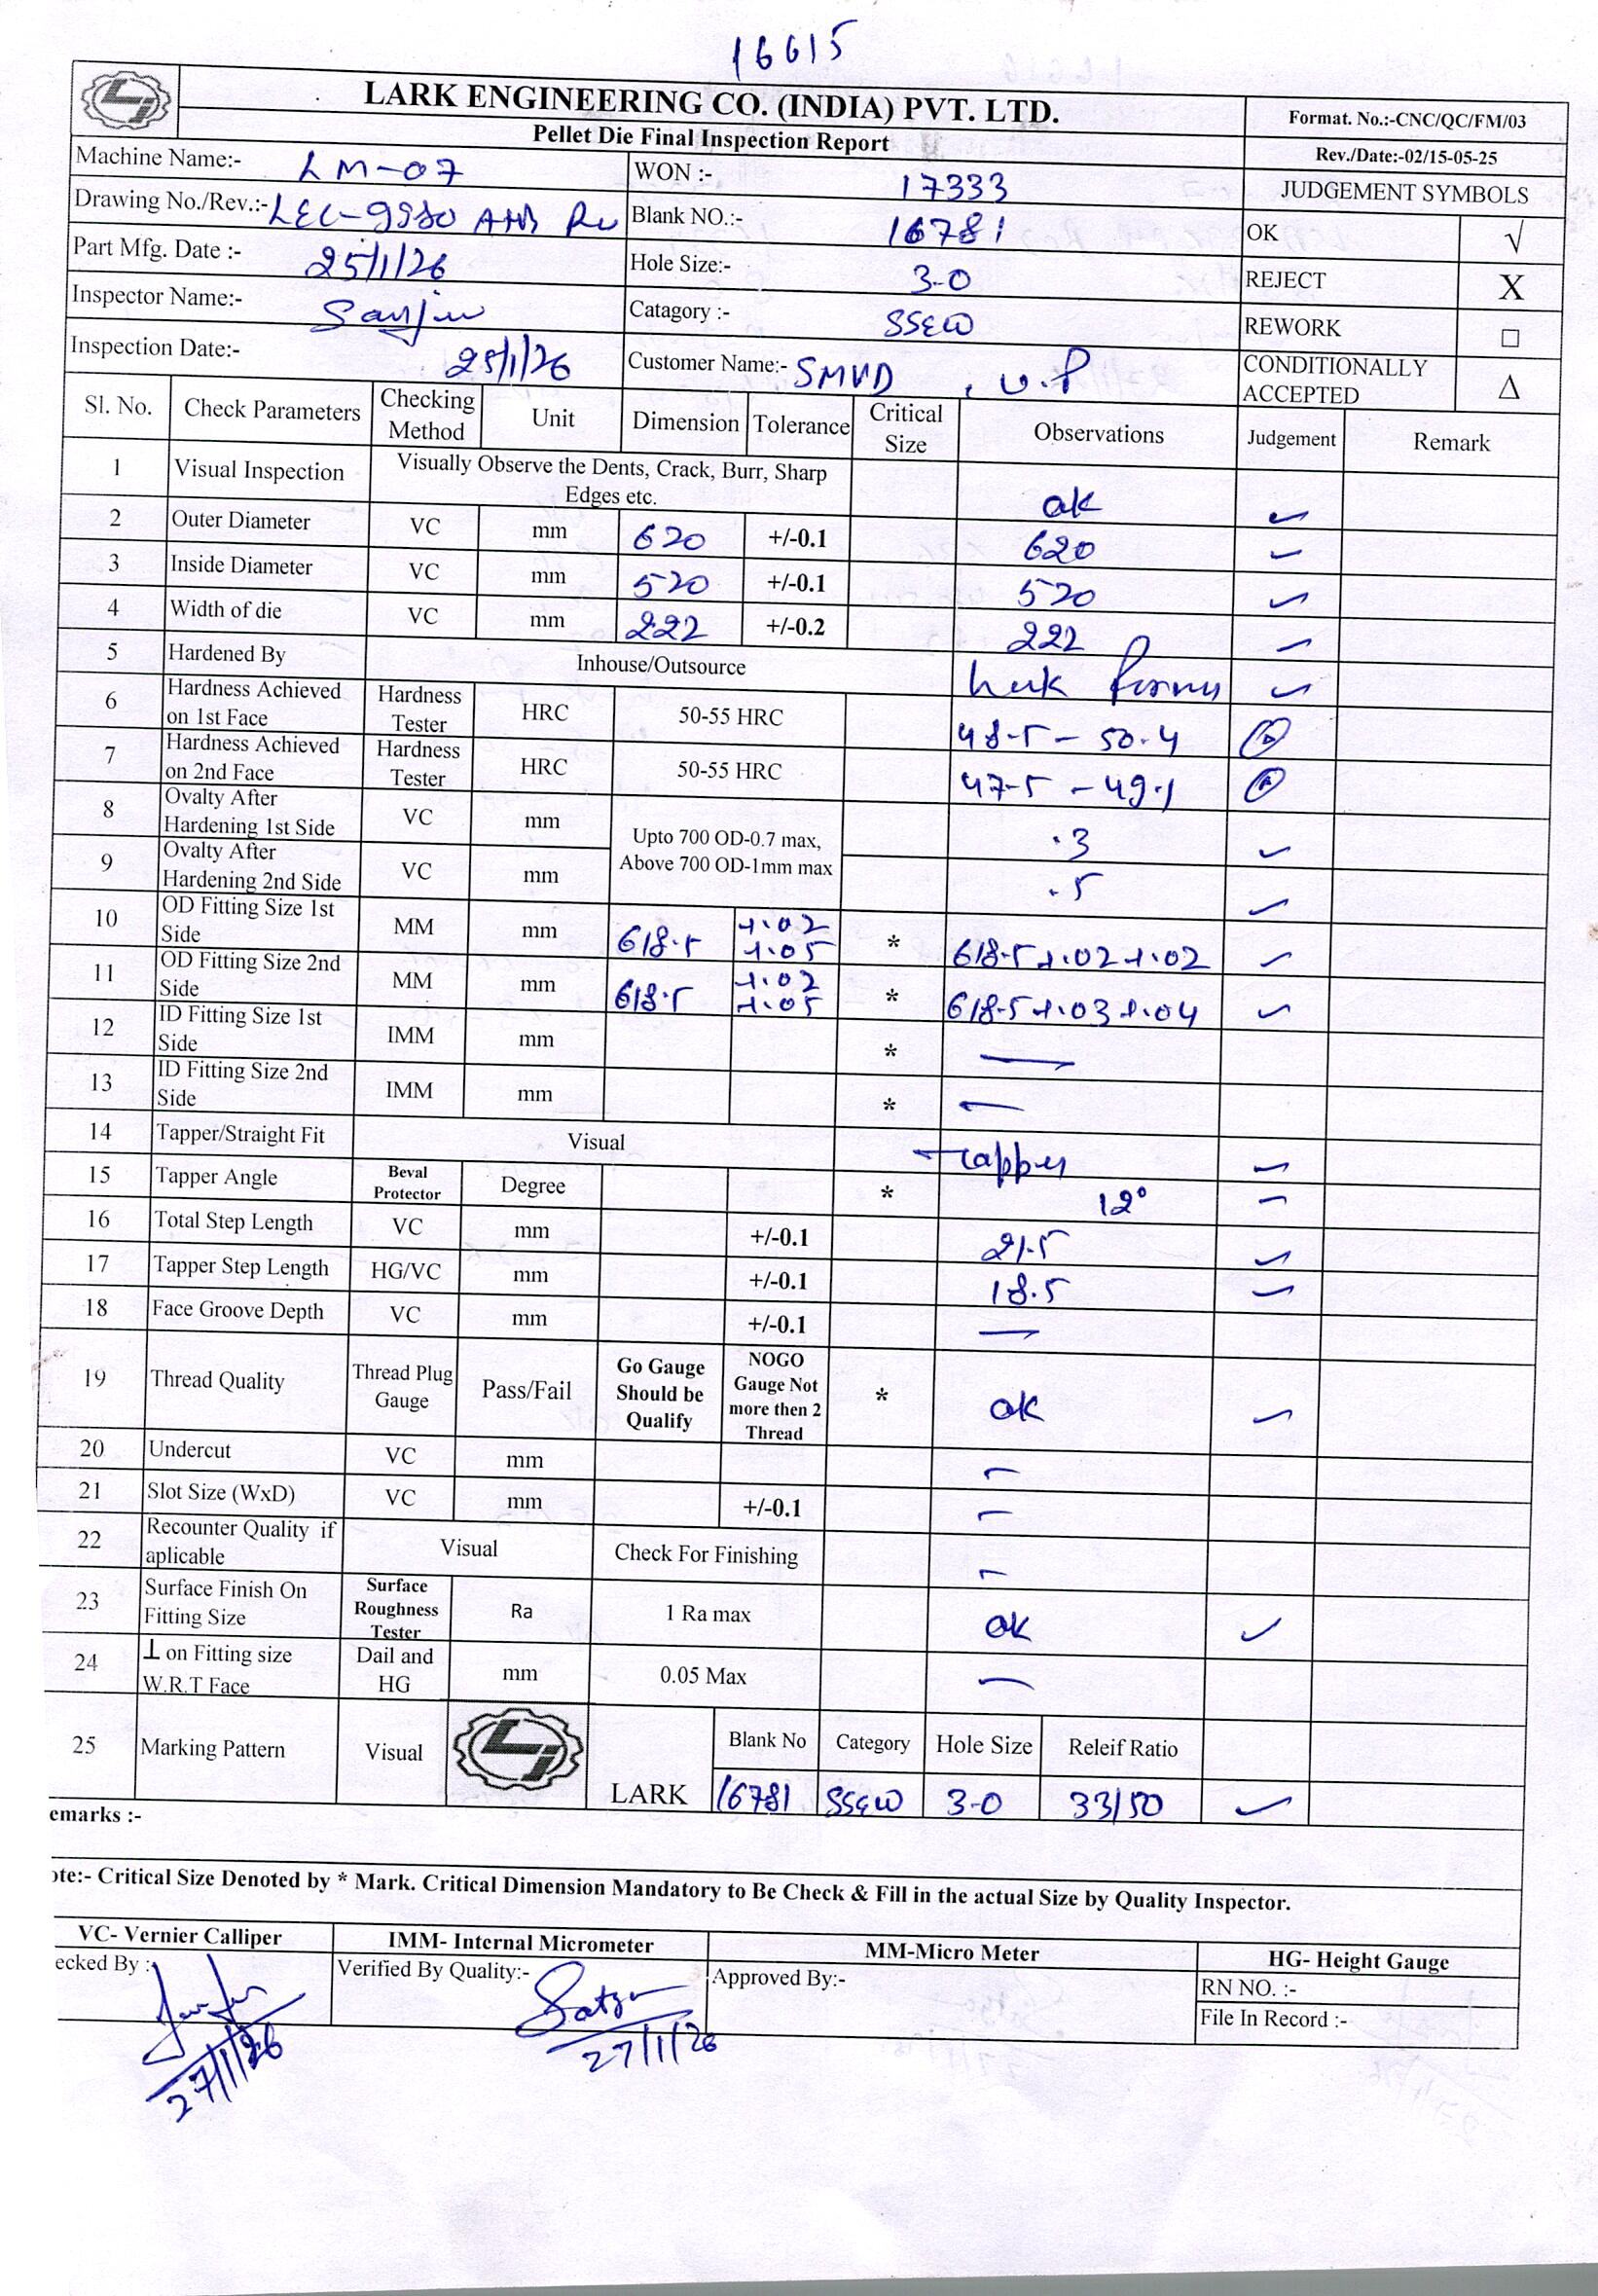 16615
LARK ENGINEERING CO. (INDIA) PVT. LTD.
Pellet Die Final Inspection Report
Format. No.:-CNC/QC/FM/03
Rev./Date:-02/15-05-25
Machine Name:- LM-07 WON :- 17333 JUDGEMENT SYMBOLS
Drawing No./Rev.:- Blank NO.:- 16781 OK √
Part Mfg. Date :- 25/1/26 Hole Size:- 3.0 REJECT X
Inspector Name:- Catagory :- SSEW REWORK □
Inspection Date:- 25/1/26 Customer Name:- SMVD, U.P CONDITIONALLY ACCEPTED Δ
Sl. No. Check Parameters Checking Method Unit Dimension Tolerance Critical Size Observations Judgement Remark
1 Visual Inspection Visually Observe the Dents, Crack, Burr, Sharp Edges etc. ok ✓
2 Outer Diameter VC mm 620 +/-0.1 620 ✓
3 Inside Diameter VC mm 520 +/-0.1 520 ✓
4 Width of die VC mm 222 +/-0.2 222 ✓
5 Hardened By Inhouse/Outsource ✓
6 Hardness Achieved on 1st Face Hardness Tester HRC 50-55 HRC 48.5 - 50.4
7 Hardness Achieved on 2nd Face Hardness Tester HRC 50-55 HRC 47.5 - 49.1
8 Ovalty After Hardening 1st Side VC mm Upto 700 OD-0.7 max, Above 700 OD-1mm max .3 ✓
9 Ovalty After Hardening 2nd Side VC mm .5 ✓
10 OD Fitting Size 1st Side MM mm 618.5 +.02 +.05 * 618.5 +.02 +.02 ✓
11 OD Fitting Size 2nd Side MM mm 618.5 +.02 +.05 * 618.5 +.03 +.04 ✓
12 ID Fitting Size 1st Side IMM mm * —
13 ID Fitting Size 2nd Side IMM mm * —
14 Tapper/Straight Fit Visual Tapper ✓
15 Tapper Angle Beval Protector Degree * 12° ✓
16 Total Step Length VC mm +/-0.1 21.5 ✓
17 Tapper Step Length HG/VC mm +/-0.1 18.5 ✓
18 Face Groove Depth VC mm +/-0.1 —
19 Thread Quality Thread Plug Gauge Pass/Fail Go Gauge Should be Qualify NOGO Gauge Not more then 2 Thread * ok ✓
20 Undercut VC mm —
21 Slot Size (WxD) VC mm +/-0.1 —
22 Recounter Quality if aplicable Visual Check For Finishing —
23 Surface Finish On Fitting Size Surface Roughness Tester Ra 1 Ra max ok ✓
24 ⊥ on Fitting size W.R.T Face Dail and HG mm 0.05 Max —
25 Marking Pattern Visual LARK Blank No Category Hole Size Releif Ratio
16781 SSEW 3.0 33/50 ✓
emarks :-
ote:- Critical Size Denoted by * Mark. Critical Dimension Mandatory to Be Check & Fill in the actual Size by Quality Inspector.
VC- Vernier Calliper IMM- Internal Micrometer MM-Micro Meter HG- Height Gauge
ecked By :- Verified By Quality:- Approved By:- RN NO. :-
File In Record :-
27/1/26 27/1/26